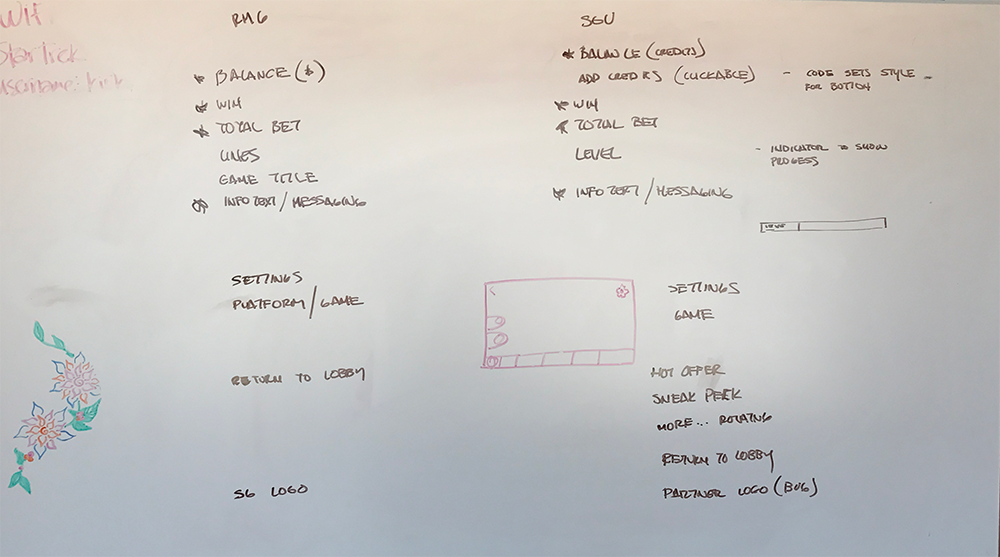 WH
Starlick
username: kick
RMG
* BALANCE ($)
* WIN
* TOTAL BET
LINES
GAME TITLE
* INFO TEXT / MESSAGING
SETTINGS
PLATFORM / GAME
RETURN TO LOBBY
SG LOGO
SGU
* BALANCE (CREDITS)
ADD CREDITS (CLICKABLE) - CODE SETS STYLE
FOR BUTTON
* WIN
* TOTAL BET
LEVEL - INDICATOR TO SHOW
PROGESS
* INFO TEXT / MESSAGING
LEVEL
SETTINGS
GAME
HOT OFFER
SNEAK PEEK
MORE... ROTATING
RETURN TO LOBBY
PARTNER LOGO (BUG)